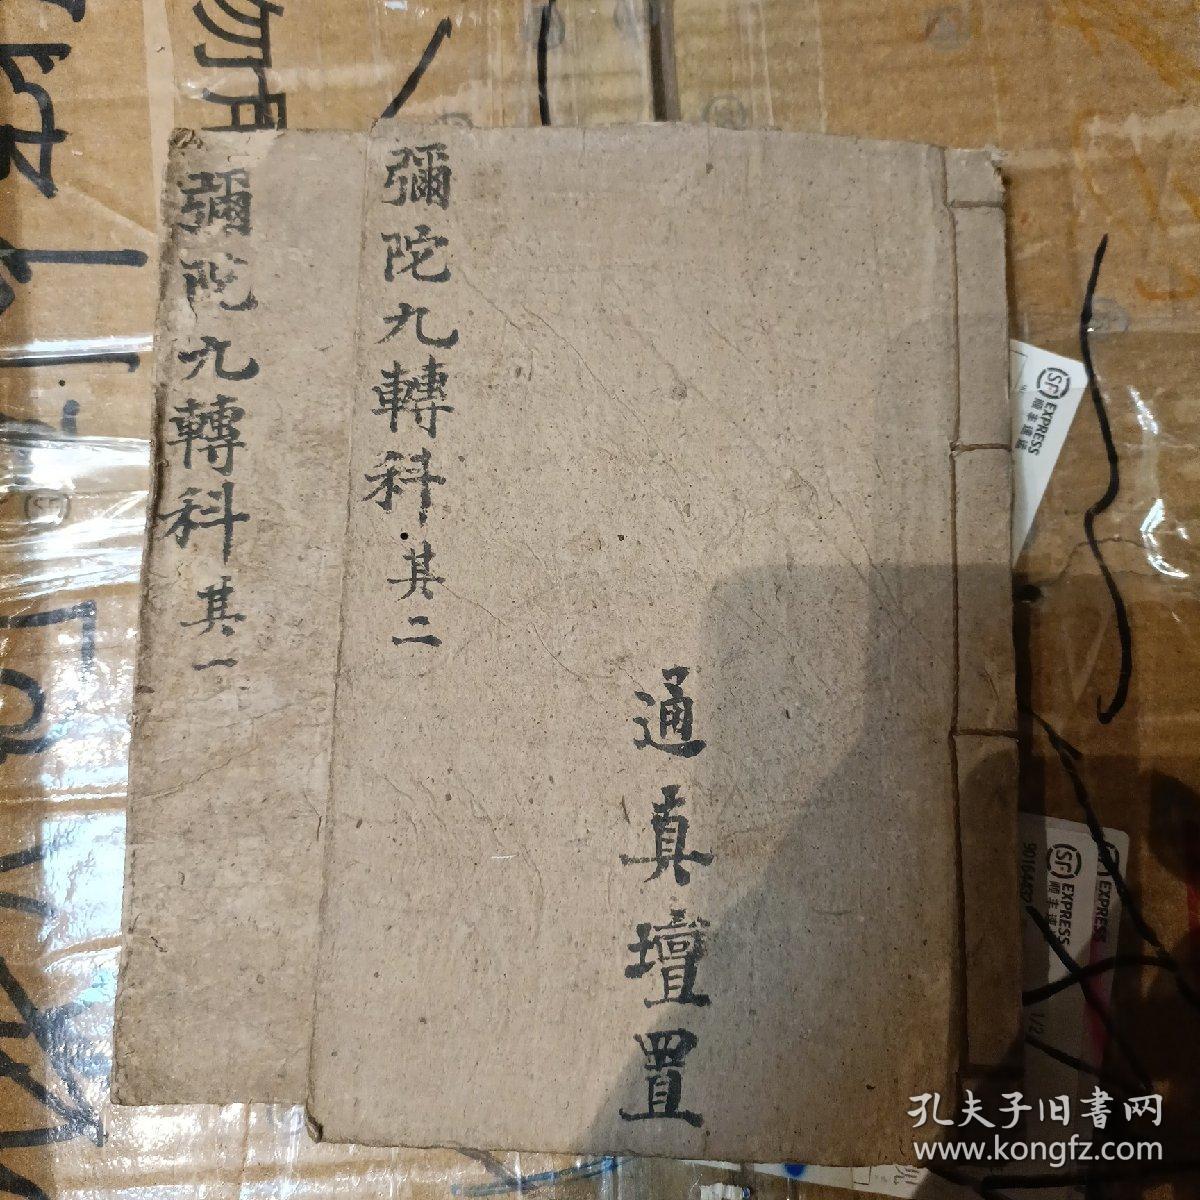 彌陀九轉科 其一
彌陀九轉科 其二
通真壇置
EXPRESS
EXPRESS
EXPRESS
孔夫子旧書网
www.kongfz.com